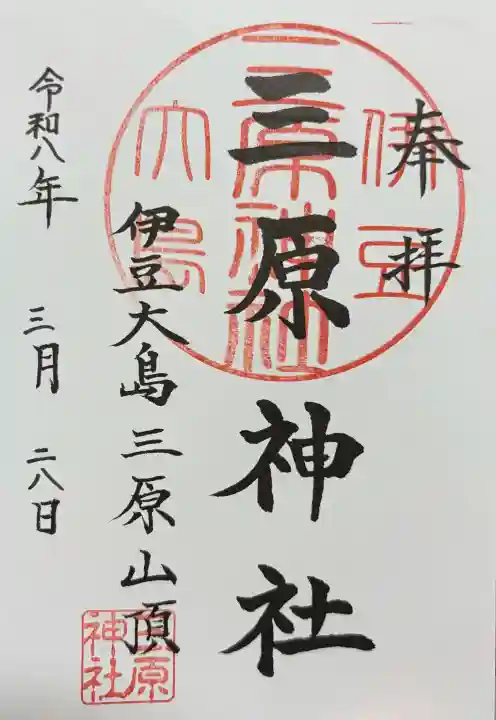 奉拝
三原神社
伊豆大島三原山頂
令和八年 三月 二八日
伊豆
三原神社
大島
三原神社